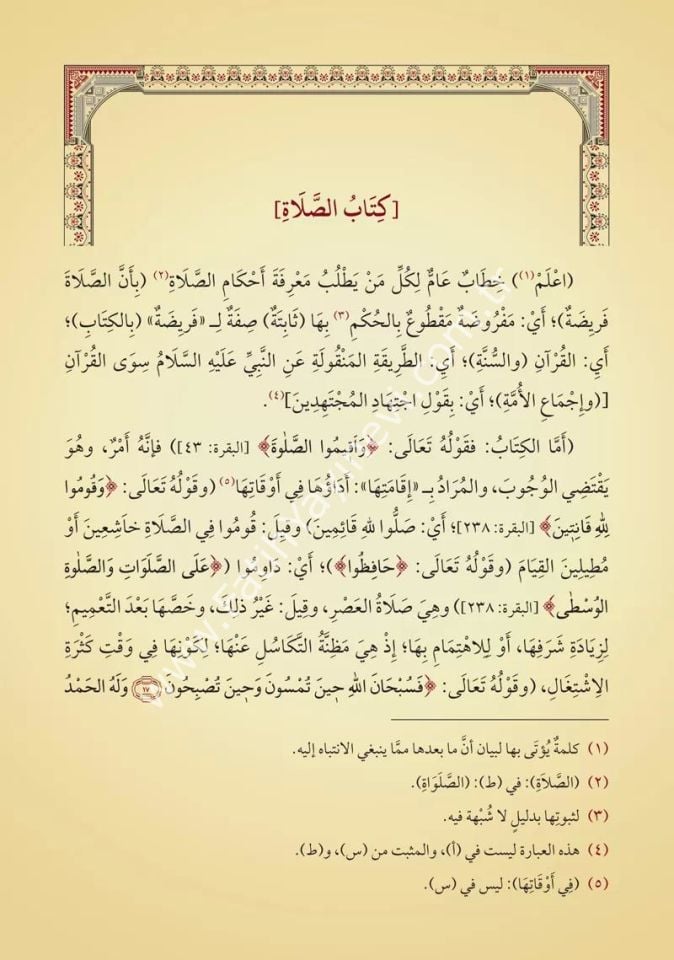 [كِتَابُ الصَّلَاةِ]
(اعْلَمْ(١)) خِطَابٌ عَامٌّ لِكُلِّ مَنْ يَطْلُبُ مَعْرِفَةَ أَحْكَامِ الصَّلَاةِ(٢) (بِأَنَّ الصَّلَاةَ
فَرِيضَةٌ)؛ أَيْ: مَفْرُوضَةٌ مَقْطُوعٌ بِالحُكْمِ(٣) بِهَا (ثَابِتَةٌ) صِفَةٌ لِـ «فَرِيضَةٌ» (بِالكِتَابِ)؛
أَيِ: القُرْآنِ (والسُّنَّةِ)؛ أَيِ: الطَّرِيقَةِ المَنْقُولَةِ عَنِ النَّبِيِّ عَلَيْهِ السَّلَامُ سِوَى القُرْآنِ
[(وإِجْمَاعِ الأُمَّةِ)؛ أَيْ: بِقَوْلِ اجْتِهَادِ المُجْتَهِدِينَ](٤).
(أَمَّا الكِتَابُ: فقَوْلُهُ تَعَالَى: ﴿وَأَقِيمُوا الصَّلٰوةَ﴾ [البقرة: ٤٣]) فإنَّهُ أَمْرٌ، وهُوَ
يَقْتَضِي الوُجُوبَ، والمُرَادُ بِـ «إِقَامَتِهَا»: أَدَاؤُهَا فِي أَوْقَاتِهَا(٥) (وقَوْلُهُ تَعَالَى: ﴿وَقُومُوا
لِلّٰهِ قَانِتِينَ﴾ [البقرة: ٢٣٨]؛ أَيْ: صَلُّوا للهِ قَائِمِينَ) وقِيلَ: قُومُوا فِي الصَّلَاةِ خَاشِعِينَ أَوْ
مُطِيلِينَ القِيَامَ (وقَوْلُهُ تَعَالَى: ﴿حَافِظُوا﴾)؛ أَيْ: دَاوِمُوا (﴿عَلَى الصَّلَوَاتِ وَالصَّلٰوةِ
الوُسْطٰى﴾ [البقرة: ٢٣٨]) وهِيَ صَلَاةُ العَصْرِ، وقِيلَ: غَيْرُ ذلِكَ، وخَصَّهَا بَعْدَ التَّعْمِيمِ؛
لِزِيَادَةِ شَرَفِهَا، أَوْ لِلاهْتِمَامِ بِهَا؛ إِذْ هِيَ مَظِنَّةُ التَّكَاسُلِ عَنْهَا؛ لِكَوْنِهَا فِي وَقْتِ كَثْرَةِ
الِاشْتِغَالِ، (وقَوْلُهُ تَعَالَى: ﴿فَسُبْحَانَ اللهِ حِينَ تُمْسُونَ وَحِينَ تُصْبِحُونَ ١٧ وَلَهُ الحَمْدُ
(١) كلمةٌ يُؤتَى بها لبيان أنَّ ما بعدها ممَّا ينبغي الانتباه إليه.
(٢) (الصَّلاَةِ): في (ط): (الصَّلَوَاةِ).
(٣) لثبوتِها بدليلٍ لا شُبْهة فيه.
(٤) هذه العبارة ليست في (أ)، والمثبت من (س)، و(ط).
(٥) (فِي أَوْقَاتِهَا): ليس في (س).